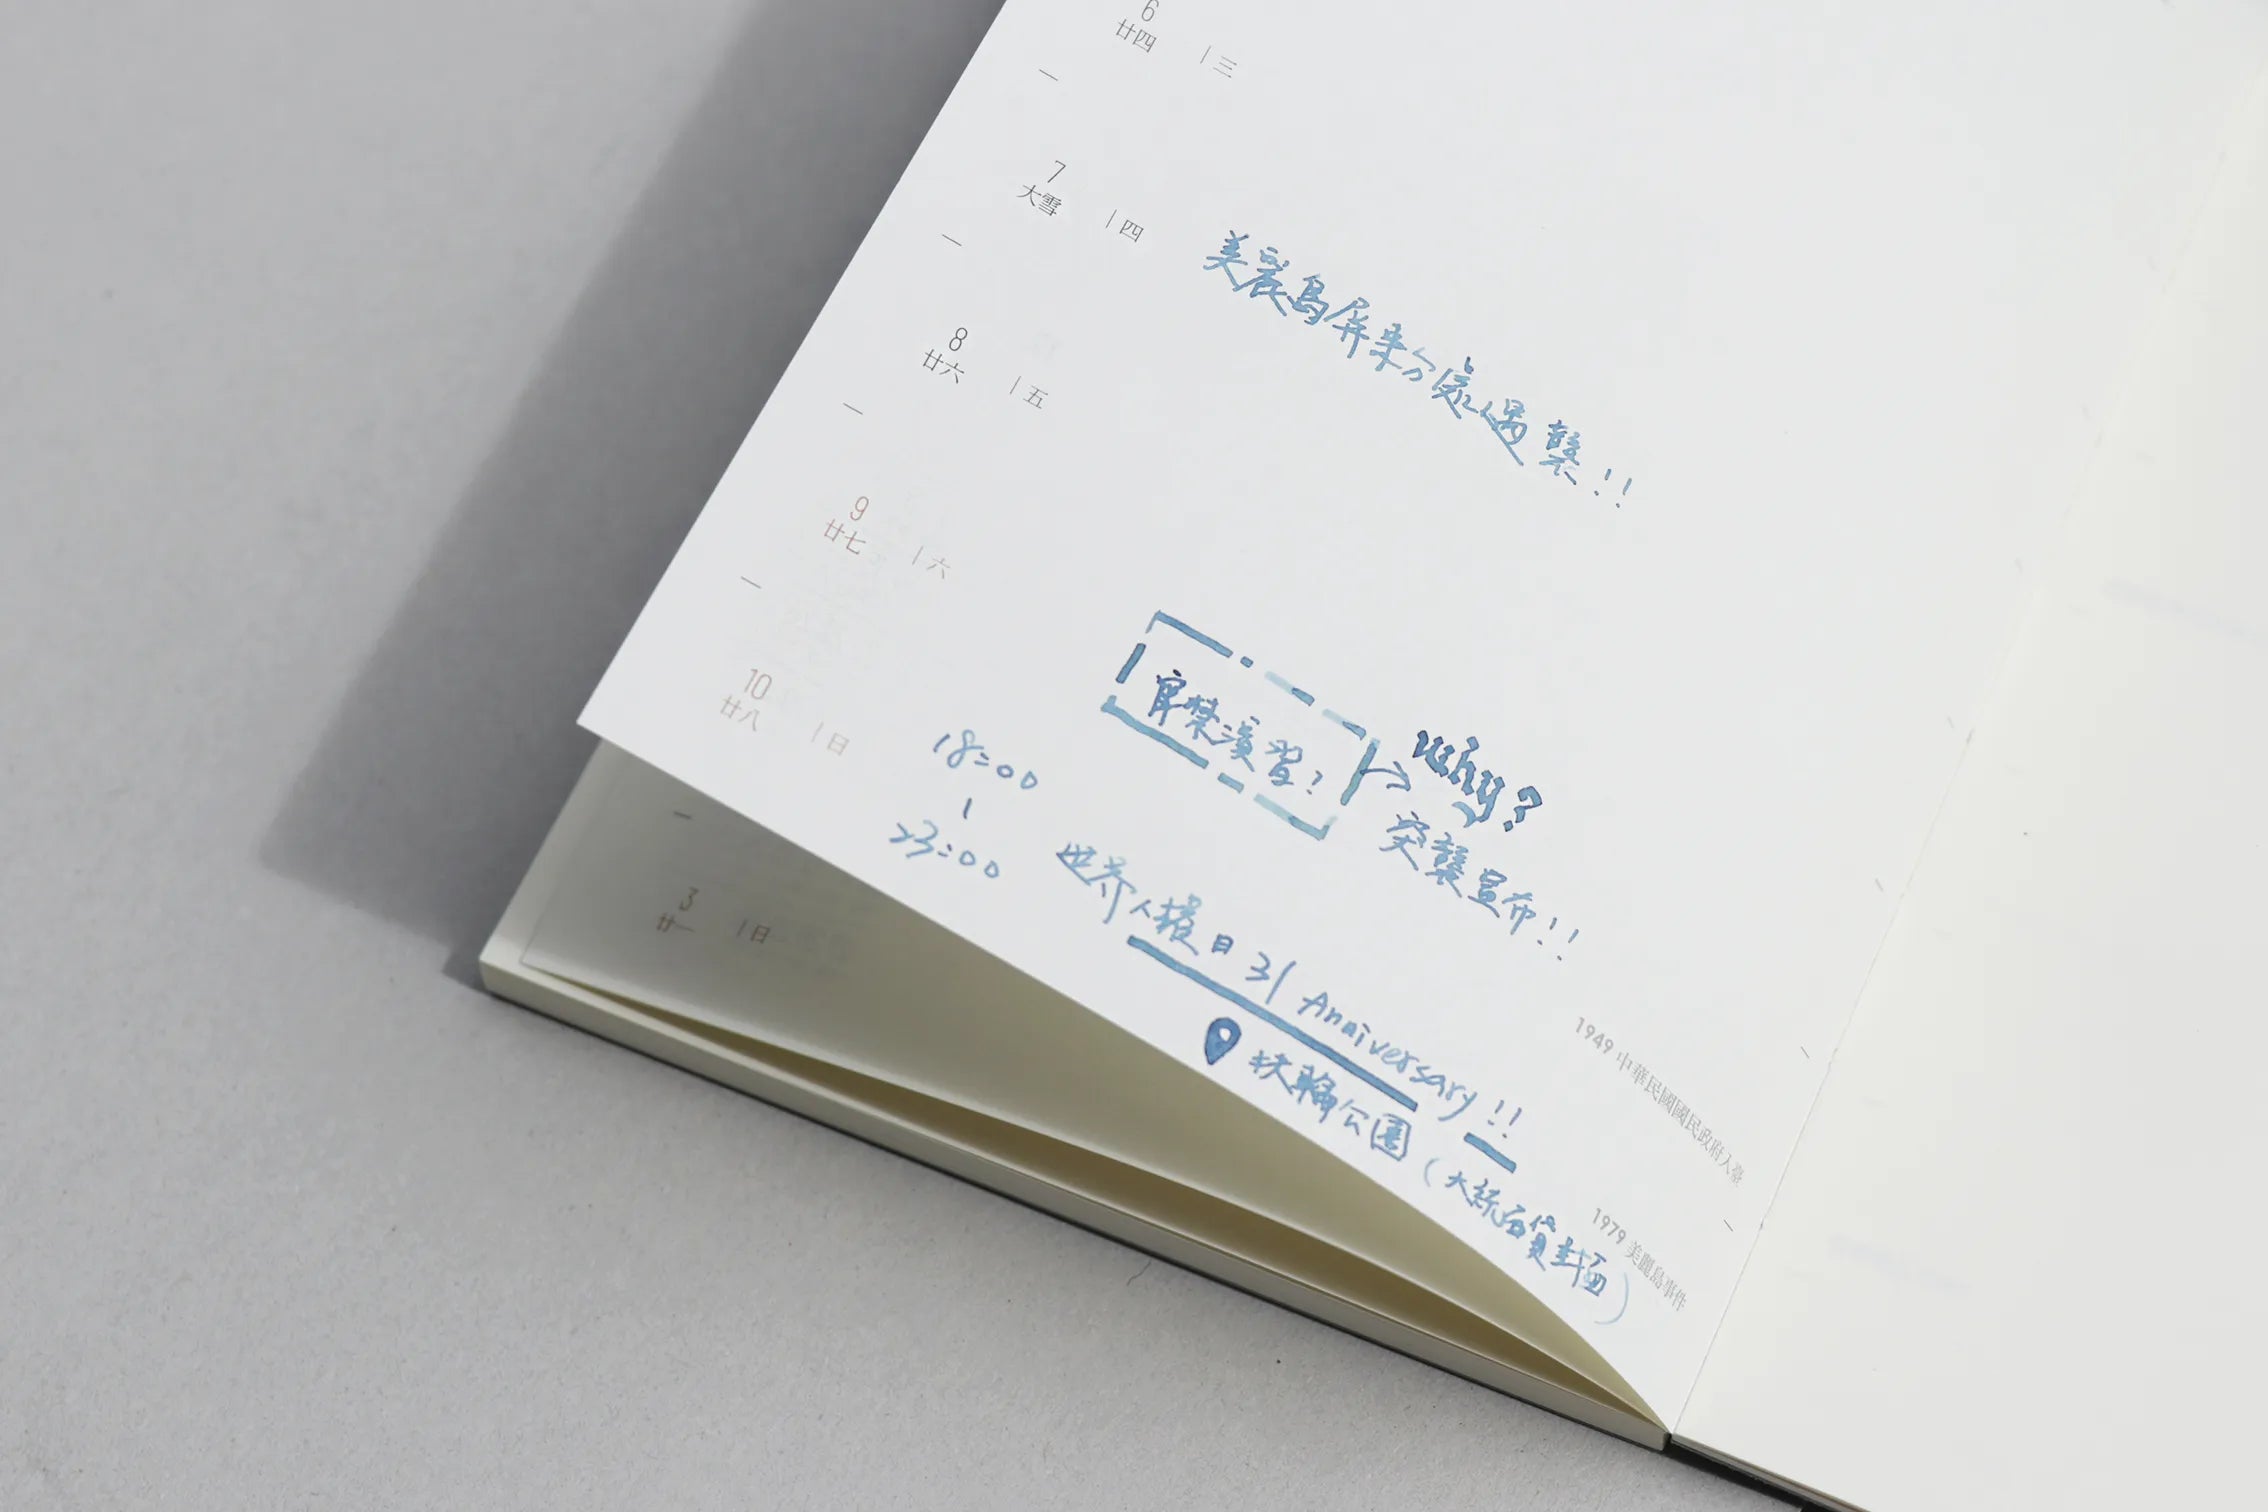 6
廿四 | 三
7
大雪 | 四
美麗島屏東分處遇襲!!
8
廿六 | 五
9
廿七 | 六
宵禁演習? → why?
突襲宣布!!
10
廿八 | 日
18:00
|
23:00
世界人權日31 Anniversary!!
扶輪公園(大統百貨對面)
1949 中華民國國民政府入臺
1979 美麗島事件
3
廿一 | 日